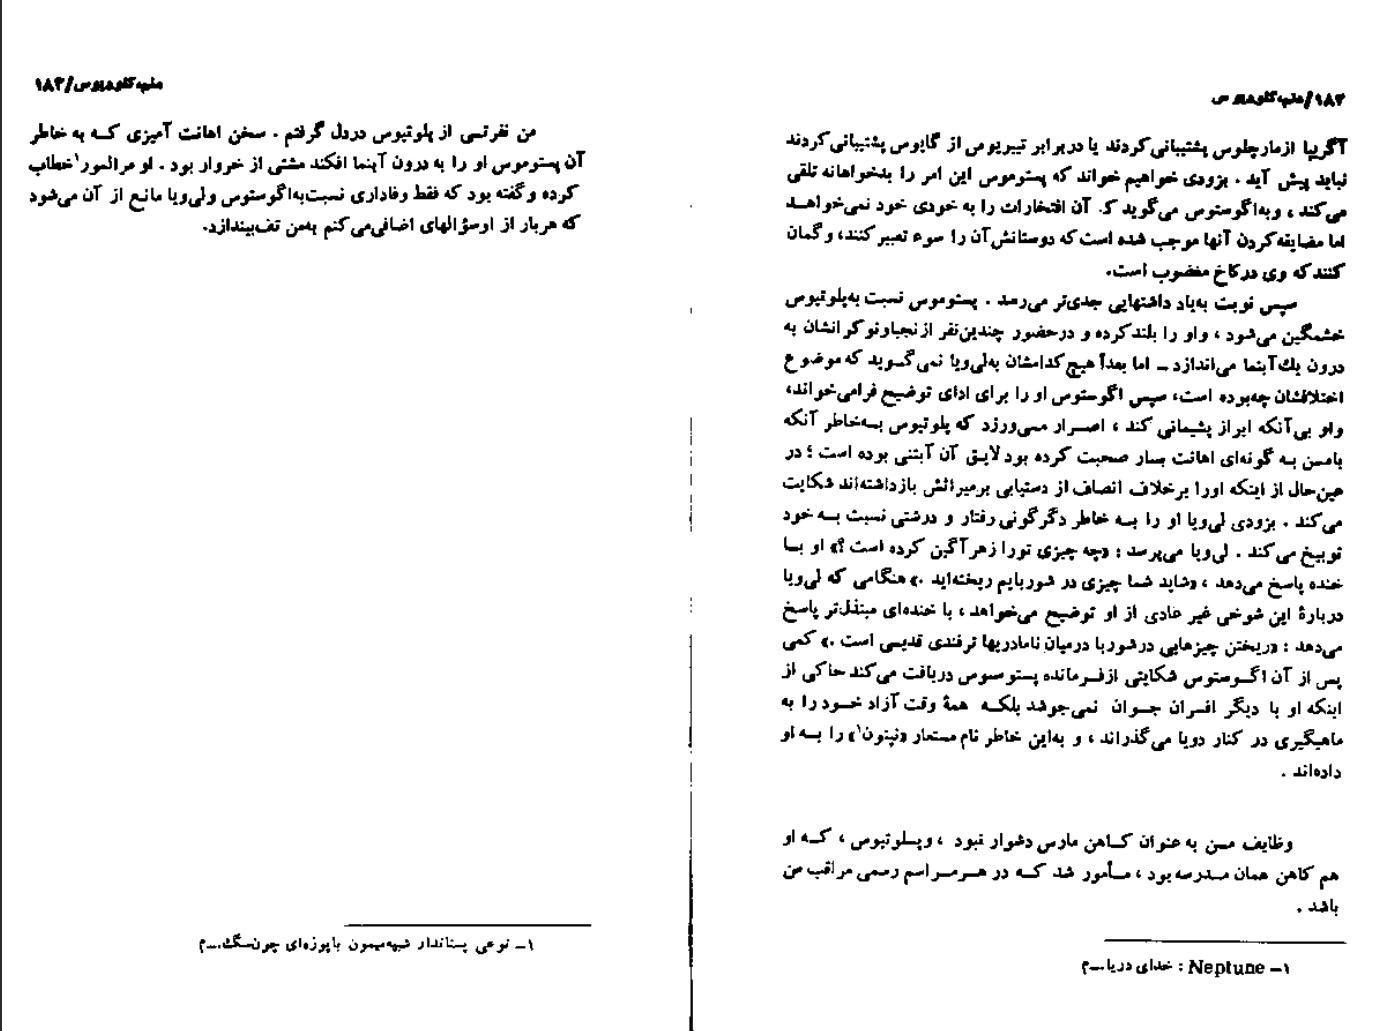 ۱۸۲/منم، کلودیوس
آگریپا ازمارچلوس پشتیبانی‌کردند یا دربرابر تیبریوس از گایوس پشتیبانی‌کردند
نباید پیش آید . بزودی خواهیم خواند که پستوموس این امر را بدخواهانه تلقی
می‌کند ، وبه‌اگوستوس می‌گوید که آن افتخارات را به خودی خود نمی‌خواهد
اما مضایقه‌کردن آنها موجب شده است‌که دوستانش‌آن را سوء تعبیر کنند، وگمان
کنندکه وی درکاخ مغضوب است.
سپس نوبت به‌یاد داشتهایی جدی‌تر می‌رسد . پستوموس نسبت به‌پلوتیوس
خشمگین می‌شود ، واو را بلندکرده و درحضور چندین‌نفر ازنجباونوکرانشان به
درون یك‌آبنما می‌اندازد ــ اما بعداً هیچ‌کدامشان به‌لی‌ویا نمی‌گوید که موضوع
اختلافشان چه‌بوده است، سپس اگوستوس او را برای ادای توضیح فرامی‌خواند،
واو بی‌آنکه ابراز پشیمانی کند ، اصرار می‌ورزد که پلوتیوس به‌خاطر آنکه
بامن به گونه‌ای اهانت بار صحبت کرده بود لایق آن آبتنی بوده است ؛ در
عین‌حال از اینکه اورا برخلاف انصاف از دستیابی برمیراثش بازداشته‌اند شکایت
می‌کند . بزودی لی‌ویا او را به خاطر دگرگونی رفتار و درشتی نسبت به خود
توبیخ می‌کند . لی‌ویا می‌پرسد : «چه چیزی تورا زهرآگین کرده است ؟» او با
خنده پاسخ می‌دهد ، «شاید شما چیزی در شوربایم ریخته‌اید .» هنگامی که لی‌ویا
دربارهٔ این شوخی غیر عادی از او توضیح می‌خواهد ، با خنده‌ای مبتذل‌تر پاسخ
می‌دهد : «ریختن چیزهایی درشوربا درمیان نامادریها ترفندی قدیمی است .» کمی
پس از آن اگوستوس شکایتی ازفرمانده پستوموس دریافت می‌کند حاکی از
اینکه او با دیگر افسران جوان نمی‌جوشد بلکه همهٔ وقت آزاد خود را به
ماهیگیری در کنار دریا می‌گذراند ، و به‌این خاطر نام مستعار «نپتون۱» را به او
داده‌اند .
وظایف من به عنوان کاهن مارس دشوار نبود ، وپلوتیوس ، که او
هم کاهن همان مدرسه بود ، مأمور شد که در هرمراسم رسمی مراقب من
باشد .
۱ــ Neptune : خدای دریا.ــم
منم، کلودیوس/۱۸۳
من نفرتی از پلوتیوس دردل گرفتم . سخن اهانت آمیزی که به خاطر
آن پستوموس او را به درون آبنما افکند مشتی از خروار بود . او مرالمور۱خطاب
کرده وگفته بود که فقط وفاداری نسبت‌به‌اگوستوس ولی‌ویا مانع از آن می‌شود
که هربار از اوسؤالهای اضافی‌می‌کنم به‌من تف‌بیندازد.
۱ــ نوعی پستاندار شبیه‌میمون باپوزه‌ای چون‌سگ.ــم